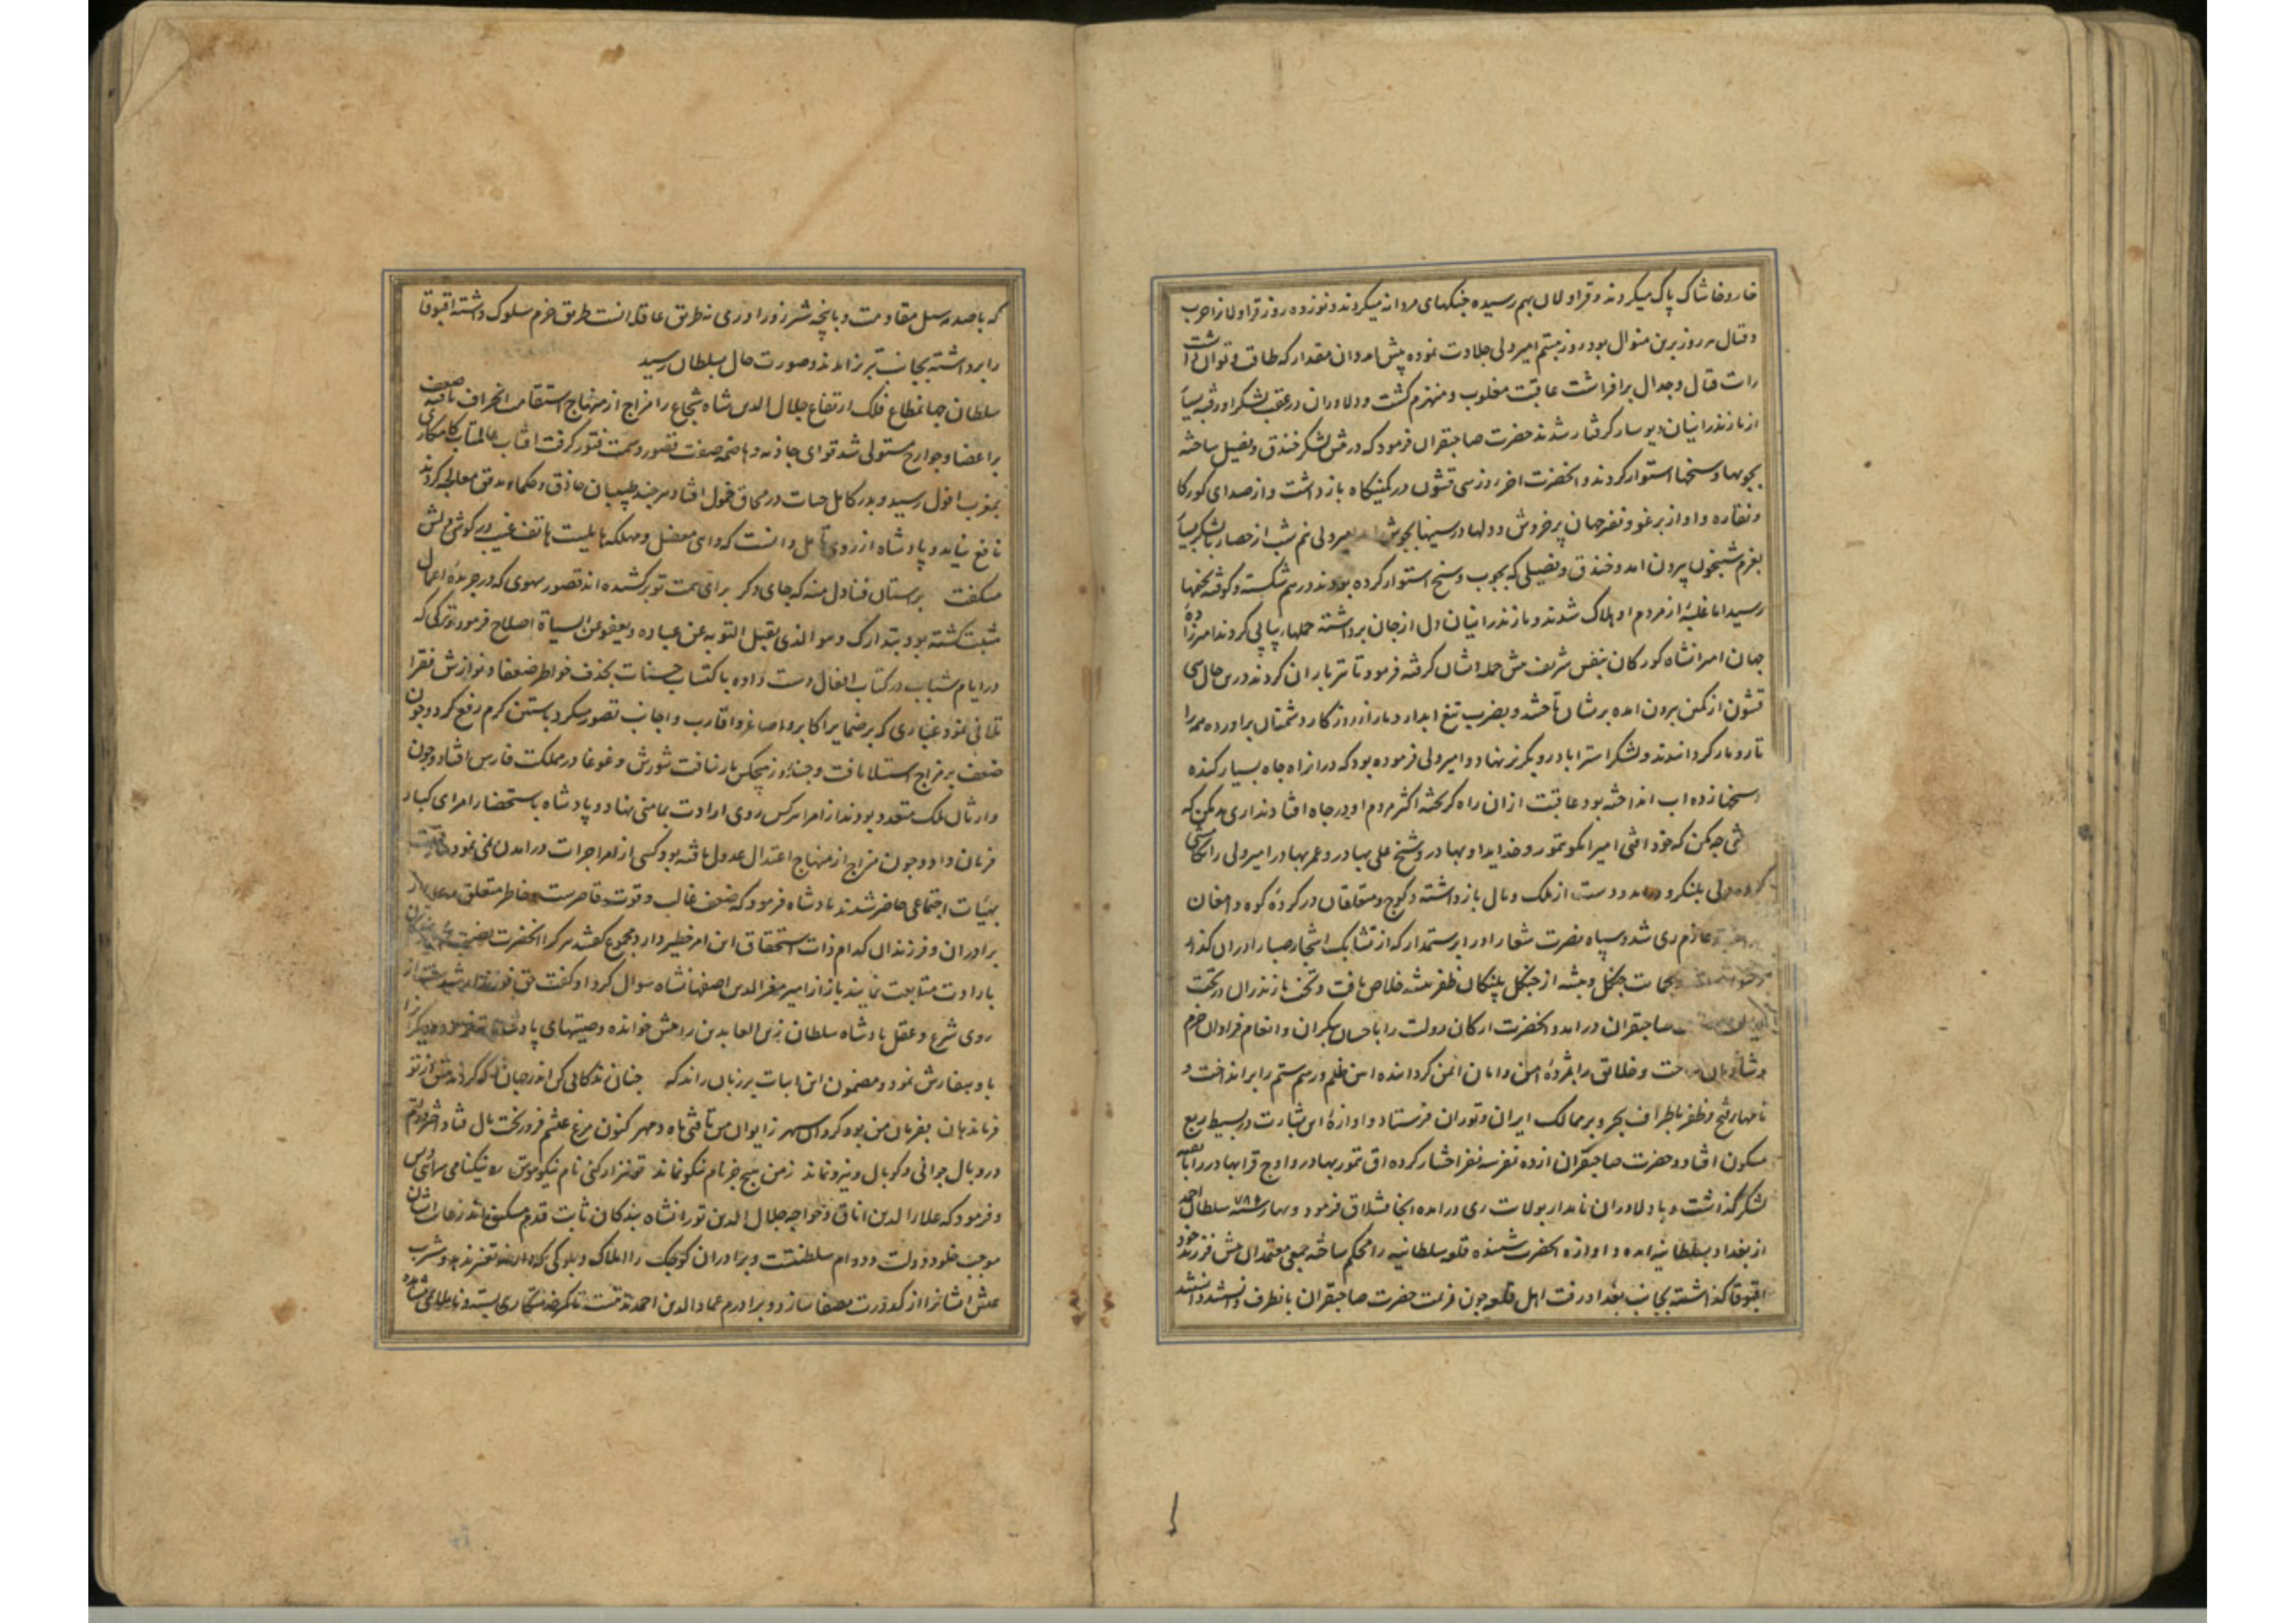 خار و خاشاک پاک میکردند و قراولان بهم رسیده جنکهای مردانه میکردند و نوزده روز قراولانرا حرب
و قتال هر روز برین منوال بود روز بیستم امیر ولی جلادت نموده پیش امد و ان مقدار که طاقت و توان داشت
رایت قتال و جدال برافراشت عاقبت مغلوب و منهزم کشت و دلاوران در عقب لشکر او رفته بسیار
از مازندرانیان دیوسار کرفتار شدند حضرت صاحبقران فرمود که در پیش لشکر خندق و فصیل ساخته
بچوبها و سیخها استوار کردند و انحضرت اخر روز سی قشون در کمینکاه بازداشت و از صدای کورکا
و نقاره و اواز برغو و نفیر جهان پر خروش و دلها در سینها بجوش امیر ولی نیم شب از حصار با لشکر بسیار
بعزم شبیخون بیرون امد و خندق و فصیلی که بچوب و سیخ استوار کرده بودند در هم شکسته و کوفته
رسید اما غلبهٔ از مردم او هلاک شدند و مازندرانیان دل از جان برداشته حملهای پیاپی کردند امیرزاده
جهان امیرانشاه کورکان بنفس شریف پیش حمله ایشان کرفته فرمود تا تیرباران کردند درین حال سی
قشون از کمین بیرون امده بریشان تاختند و بضرب تیغ ابدار دمار از روزکار دشمنان براورده همه را
تارومار کردانیدند و لشکر استراباد رو بکریز نهاد و امیر ولی فرموده بود که در انراه چاه بسیار کنده
سیخها زده اب انداخته بود عاقبت از ان راه کریخته اکثر مردم او در چاه افتادند اری بد مکن که
چه مکن که خود افتی امیر ایکو تمور و خدایداد بهادر و شیخ علی بهادر و عمر بهادر امیر ولی را
ولی بلنکرود امد و دست از ملک و مال بازداشته و کوچ و متعلقان در کردهٔ کوه دامغان
عازم ری شد و سپاه نصرت شعار او را برستمدار که از تشابک اشجار صبا را دران کذار
بحمایت جنکل و بیشه از چنکل پلنکان ظفر پیشه خلاص یافت و تخت مازندران در تحت
صاحبقران درامد و انحضرت ارکان دولت را باحسان بیکران و انعام فراوان خرم
و شادمان ساخت و خلایق را بمژدهٔ امن و امان ایمن کردانیده اساس ظلم و رسم ستم را برانداخت و
نامهای فتح و ظفر باطراف بحر و بر ممالک ایران و توران فرستاد و اوازهٔ این بشارت در بسیط ربع
مسکون افتاد و حضرت صاحبقران از ده نفر سه نفر اختیار کرده اق تمور بهادر و اوچ قرا بهادر را با بقیه
لشکر کذاشت و با دلاوران نامدار بولایت ری درامده انجا قشلاق فرمود و بهار سنه ۷۸۶ سلطان احمد
از بغداد بسلطانیه امده و اوازه انحضرت شنیده قلعه سلطانیه را محکم ساخته جمعی معتمدان پیش فرزند خود
اقبوقا کذاشته بجانب بغداد رفت اهل قلعه چون عزیمت حضرت صاحبقران بانطرف دانستند
که با صدمه سیل مقاومت و با پنجه شیر زوراوری نه طریق عاقلانست طریق حزم سلوک داشته اقبوقا
را برداشته بجانب تبریز امدند و صورت حال بسلطان رسید
سلطان جهانمطاع فلک ارتفاع جلال الدین شاه شجاع را مزاج از منهاج استقامت انحراف یافته ضعف
بر اعضا و جوارح مستولی شد قوای جاذبه و هاضمه صفت قصور و سمت فتور کرفت افتاب عالمتاب کامکاری
بمغرب افول رسید و بدر کامل حیات در محاق خمول افتاد هرچند طبیبان حاذق و حکماء مدقق معالجه کردند
نافع نیامد و پادشاه از روی تامل دانست که داهی معضل و مهلکه هایلیست هاتف غیب در کوش دلش
میکفت برستان فنا دل منه که جای دکر برای همت تو برکشیده اند قصور سهوی که در جریدهٔ اعمال
مثبت کشته بود بتدارک و هو الذی یقبل التوبه عن عباده و یعفو عن السیاة اصلاح فرمود و ترکی که
در ایام شباب در کتاب افعال دست داده باکتساب حسنات بحذف خواطر ضعفا و نوازش فقرا
تلافی نمود و غباری که بر ضمایر اکابر و اصاغر و اقارب و اجانب تصور میکرد باستین کرم رفع کرد و چون
ضعف بر مزاج استیلا یافت و جنازه هیچکس بار نیافت شورش و غوغا در مملکت فارس افتاد و چون
وارثان ملک متعدد بودند از امرا هرکس روی ارادت بمامنی نهاد و پادشاه باستحضار امرای کبار
فرمان داد و چون مزاج از منهاج اعتدال عدول یافته بود کسی از امرا جرات درامدن نمی نمود عاقبت
بهیات اجتماعی حاضر شدند پادشاه فرمود که ضعف غالب و قوت قاصرست و خاطر متعلق
برادران و فرزندان کدام ذات استحقاق این امر خطیر دارد مجموع کفتند هر کرا انحضرت
بارادت متابعت نمایند باز از امیر معزالدین اصفهانشاه سوال کرد او کفت حق فرزند ارشدست از
روی شرع و عقل پادشاه سلطان زین العابدین را پیش خوانده وصیتهای پادشاهانه و دیکرانرا
باو سفارش نمود و مضمون این ابیات بر زبان راند که چنان زندکانی کن اندر جهان که کردند پیش از تو
فرماندهان بفرمان من بود کردان سپهر ز ایوان من تافتی ماه و مهر کنون مرغ عیشم فرو ریخت بال فتاد اخترم در
در و بال جوانی و کوپال و نیرو نماند ز من هیچ جز نام نیکو نماند تو نیز ار کنی نام نیکو هوس ره نیکنامی
و فرمود که علاء الدین اناق و خواجه جلال الدین تورانشاه بندکان ثابت قدم رعایت ایشان
موجب خلود دولت و دوام سلطنتست و برادران کوچک را املاک و بلوکی و مشرب
عیش ایشانرا از کدورت مصفا سازد و برادرم عماد الدین احمد